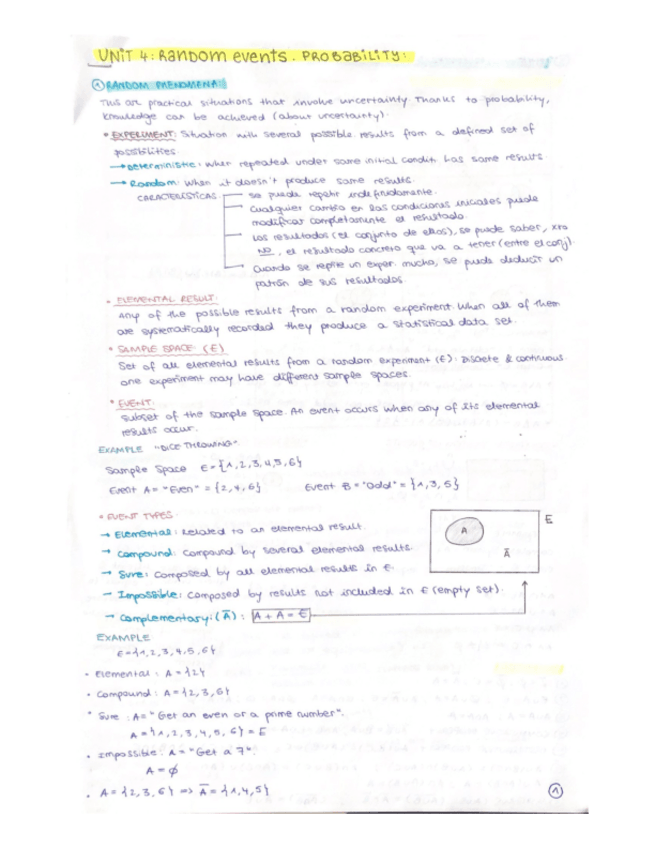 UNIT 4: Random events. PROBABILITY:
① RANDOM PHENOMENA:
This are practical situations that involve uncertainty. Thanks to probability,
knowledge can be achieved (about uncertainty).
• EXPERIMENT: Situation with several possible results from a defined set of
possibilities.
→ Deterministic: when repeated under same initial condit. has same results
→ Random: When it doesn't produce same results.
CARACTERÍSTICAS
se puede repetir indefinidamente.
Cualquier cambio en las condiciones iniciales puede
modificar completamente el resultado.
Los resultados (el conjunto de ellos), se puede saber, xro
NO, el resultado concreto que va a tener (entre el conj)
Cuando se repite un exper. mucho, se puede deducir un
patrón de sus resultados.
• ELEMENTAL RESULT:
Any of the possible results from a random experiment. When all of them
are systematically recorded they produce a statistical data set.
• SAMPLE SPACE (E)
Set of all elemental results from a random experiment (E): Discrete & continuous.
one experiment may have different sample spaces.
• EVENT:
Subset of the sample space. An event occurs when any of its elemental
results occur.
EXAMPLE "DICE THROWING"
Sample Space E={1,2,3,4,5,6}
Event A = "Even" = {2,4,6} Event B = "Odd" = {1,3,5}
• EVENT TYPES:
→ Elemental: Related to an elemental result.
→ Compound: Compound by several elemental results.
→ Sure: Composed by all elemental results in E.
→ Impossible: Composed by results not included in E (empty set).
→ Complementary: (Ā): A + Ā = E
E
A
Ā
EXAMPLE
E={1,2,3,4,5,6}
• Elemental: A={2}
• Compound: A={2,3,6}
• Sure: A= "Get an even or a prime number".
A={1,2,3,4,5,6} = E
• Impossible: A = "Get a 7".
A = ∅
• A = {2,3,6} => Ā = {1,4,5}
①